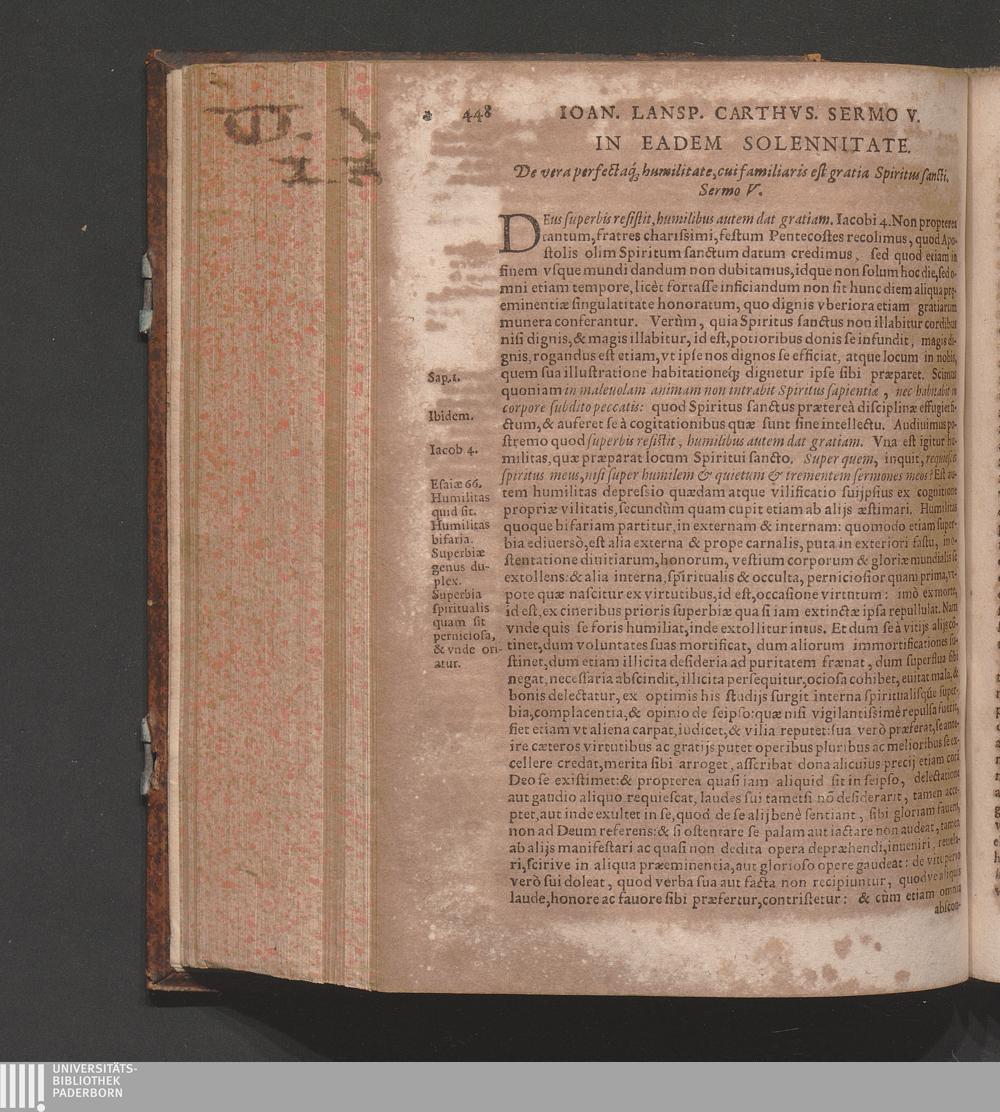 448 IOAN. LANSP. CARTHVS. SERMO V.
IN EADEM SOLENNITATE.
De vera perfectaq́; humilitate, cui familiaris eſt gratia Spiritus ſancti.
Sermo V.
DEus ſuperbis reſiſtit, humilibus autem dat gratiam. Iacobi 4. Non propterea
tantum, fratres chariſsimi, feſtum Pentecoſtes recolimus, quod Apo-
ſtolis olim Spiritum ſanctum datum credimus, ſed quod etiam in
finem vſque mundi dandum non dubitamus, idque non ſolum hoc die, ſed o-
mni etiam tempore, licèt fortaſſe inficiandum non ſit hunc diem aliqua præ-
eminentiæ ſingulatitate honoratum, quo dignis vberiora etiam gratiarum
munera conferantur. Verùm, quia Spiritus ſanctus non illabitur cordibus
niſi dignis, & magis illabitur, id eſt, potioribus donis ſe infundit, magis di-
gnis, rogandus eſt etiam, vt ipſe nos dignos ſe efficiat, atque locum in nobis,
quem ſua illuſtratione habitationeq́; dignetur ipſe ſibi præparet. Scimus
quoniam in maleuolam animam non intrabit Spiritus ſapientiæ, nec habitabit in
corpore ſubdito peccatis: quod Spiritus ſanctus præterea diſciplinæ effugiet fi-
ctum, & auferet ſe à cogitationibus quæ ſunt ſine intellectu. Audiuimus po-
ſtremo quod ſuperbis reſiſtit, humilibus autem dat gratiam. Vna eſt igitur hu-
militas, quæ præparat locum Spiritui ſancto. Super quem, inquit, requieſcet
ſpiritus meus, niſi ſuper humilem & quietum & trementem ſermones meos? Eſt au-
tem humilitas depreſsio quædam atque vilificatio ſuijpſius ex cognitione
propriæ vilitatis, ſecundùm quam cupit etiam ab alijs æſtimari. Humilitas
quoque bifariam partitur, in externam & internam: quomodo etiam ſuper-
bia ediuersò, eſt alia externa & prope carnalis, puta in exteriori faſtu, in o-
ſtentatione diuitiarum, honorum, veſtium corporum & gloriæ mundialis ſe
extollens: & alia interna, ſpiritualis & occulta, pernicioſior quam prima, vt-
pote quæ naſcitur ex virtutibus, id eſt, occaſione virtutum: imò ex morte,
id eſt, ex cineribus prioris ſuperbiæ quaſi iam extinctæ ipſa repullulat. Nam
vnde quis ſe foris humiliat, inde extollitur intus. Et dum ſe à vitijs alijs cõ-
tinet, dum voluntates ſuas mortificat, dum aliorum immortificationes ſu-
ſtinet, dum etiam illicita deſideria ad puritatem frænat, dum ſuperflua ſibi
negat, neceſſaria abſcindit, illicita perſequitur, ocioſa cohibet, euitat mala, &
bonis delectatur, ex optimis his ſtudijs ſurgit interna ſpiritualiſque ſuper-
bia, complacentia, & opinio de ſeipſo: quæ niſi vigilantiſsimè repulſa fuerit,
fiet etiam vt aliena carpat, iudicet, & vilia reputet: ſua verò præferat, ſe ante-
ire cæteros virtutibus ac gratijs putet operibus pluribus ac melioribus ſe ex-
cellere credat, merita ſibi arroget, aſſcribat dona alicuius precij etiam corã
Deo ſe exiſtimet: & propterea quaſi iam aliquid ſit in ſeipſo, delectatione
aut gaudio aliquo requieſcat, laudes ſui tametſi nõ deſiderarit, tamen acce-
ptet, aut inde exultet in ſe, quod de ſe alij benè ſentiant, ſibi gloriam fauens,
non ad Deum referens: & ſi oſtentare ſe palam aut iactare non audeat, tamen
ab alijs manifeſtari ac quaſi non dedita opera depræhendi, inueniri, reuela-
ri, ſcirive in aliqua præeminentia, aut glorioſo opere gaudeat: de vituperio
verò ſui doleat, quod verba ſua aut facta non recipiuntur, quod ve aliquis
laude, honore ac fauore ſibi præfertur, contriſtetur: & cùm etiam omnia
abſcon-
Sap. 1.
Ibidem.
Iacob 4.
Eſaiæ 66.
Humilitas
quid ſit.
Humilitas
bifaria.
Superbiæ
genus du-
plex.
Superbia
ſpiritualis
quam ſit
pernicioſa,
& vnde ori-
atur.
UNIVERSITÄTS-
BIBLIOTHEK
PADERBORN